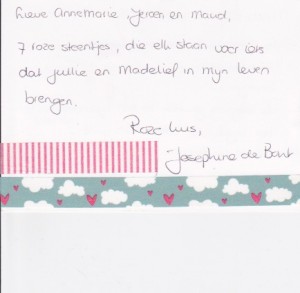 Lieve Annemarie, Jeroen en Maud,
7 roze steentjes, die elk staan voor iets
dat jullie en Madelief in mijn leven
brengen.
Roze kus,
Josephine de Bont